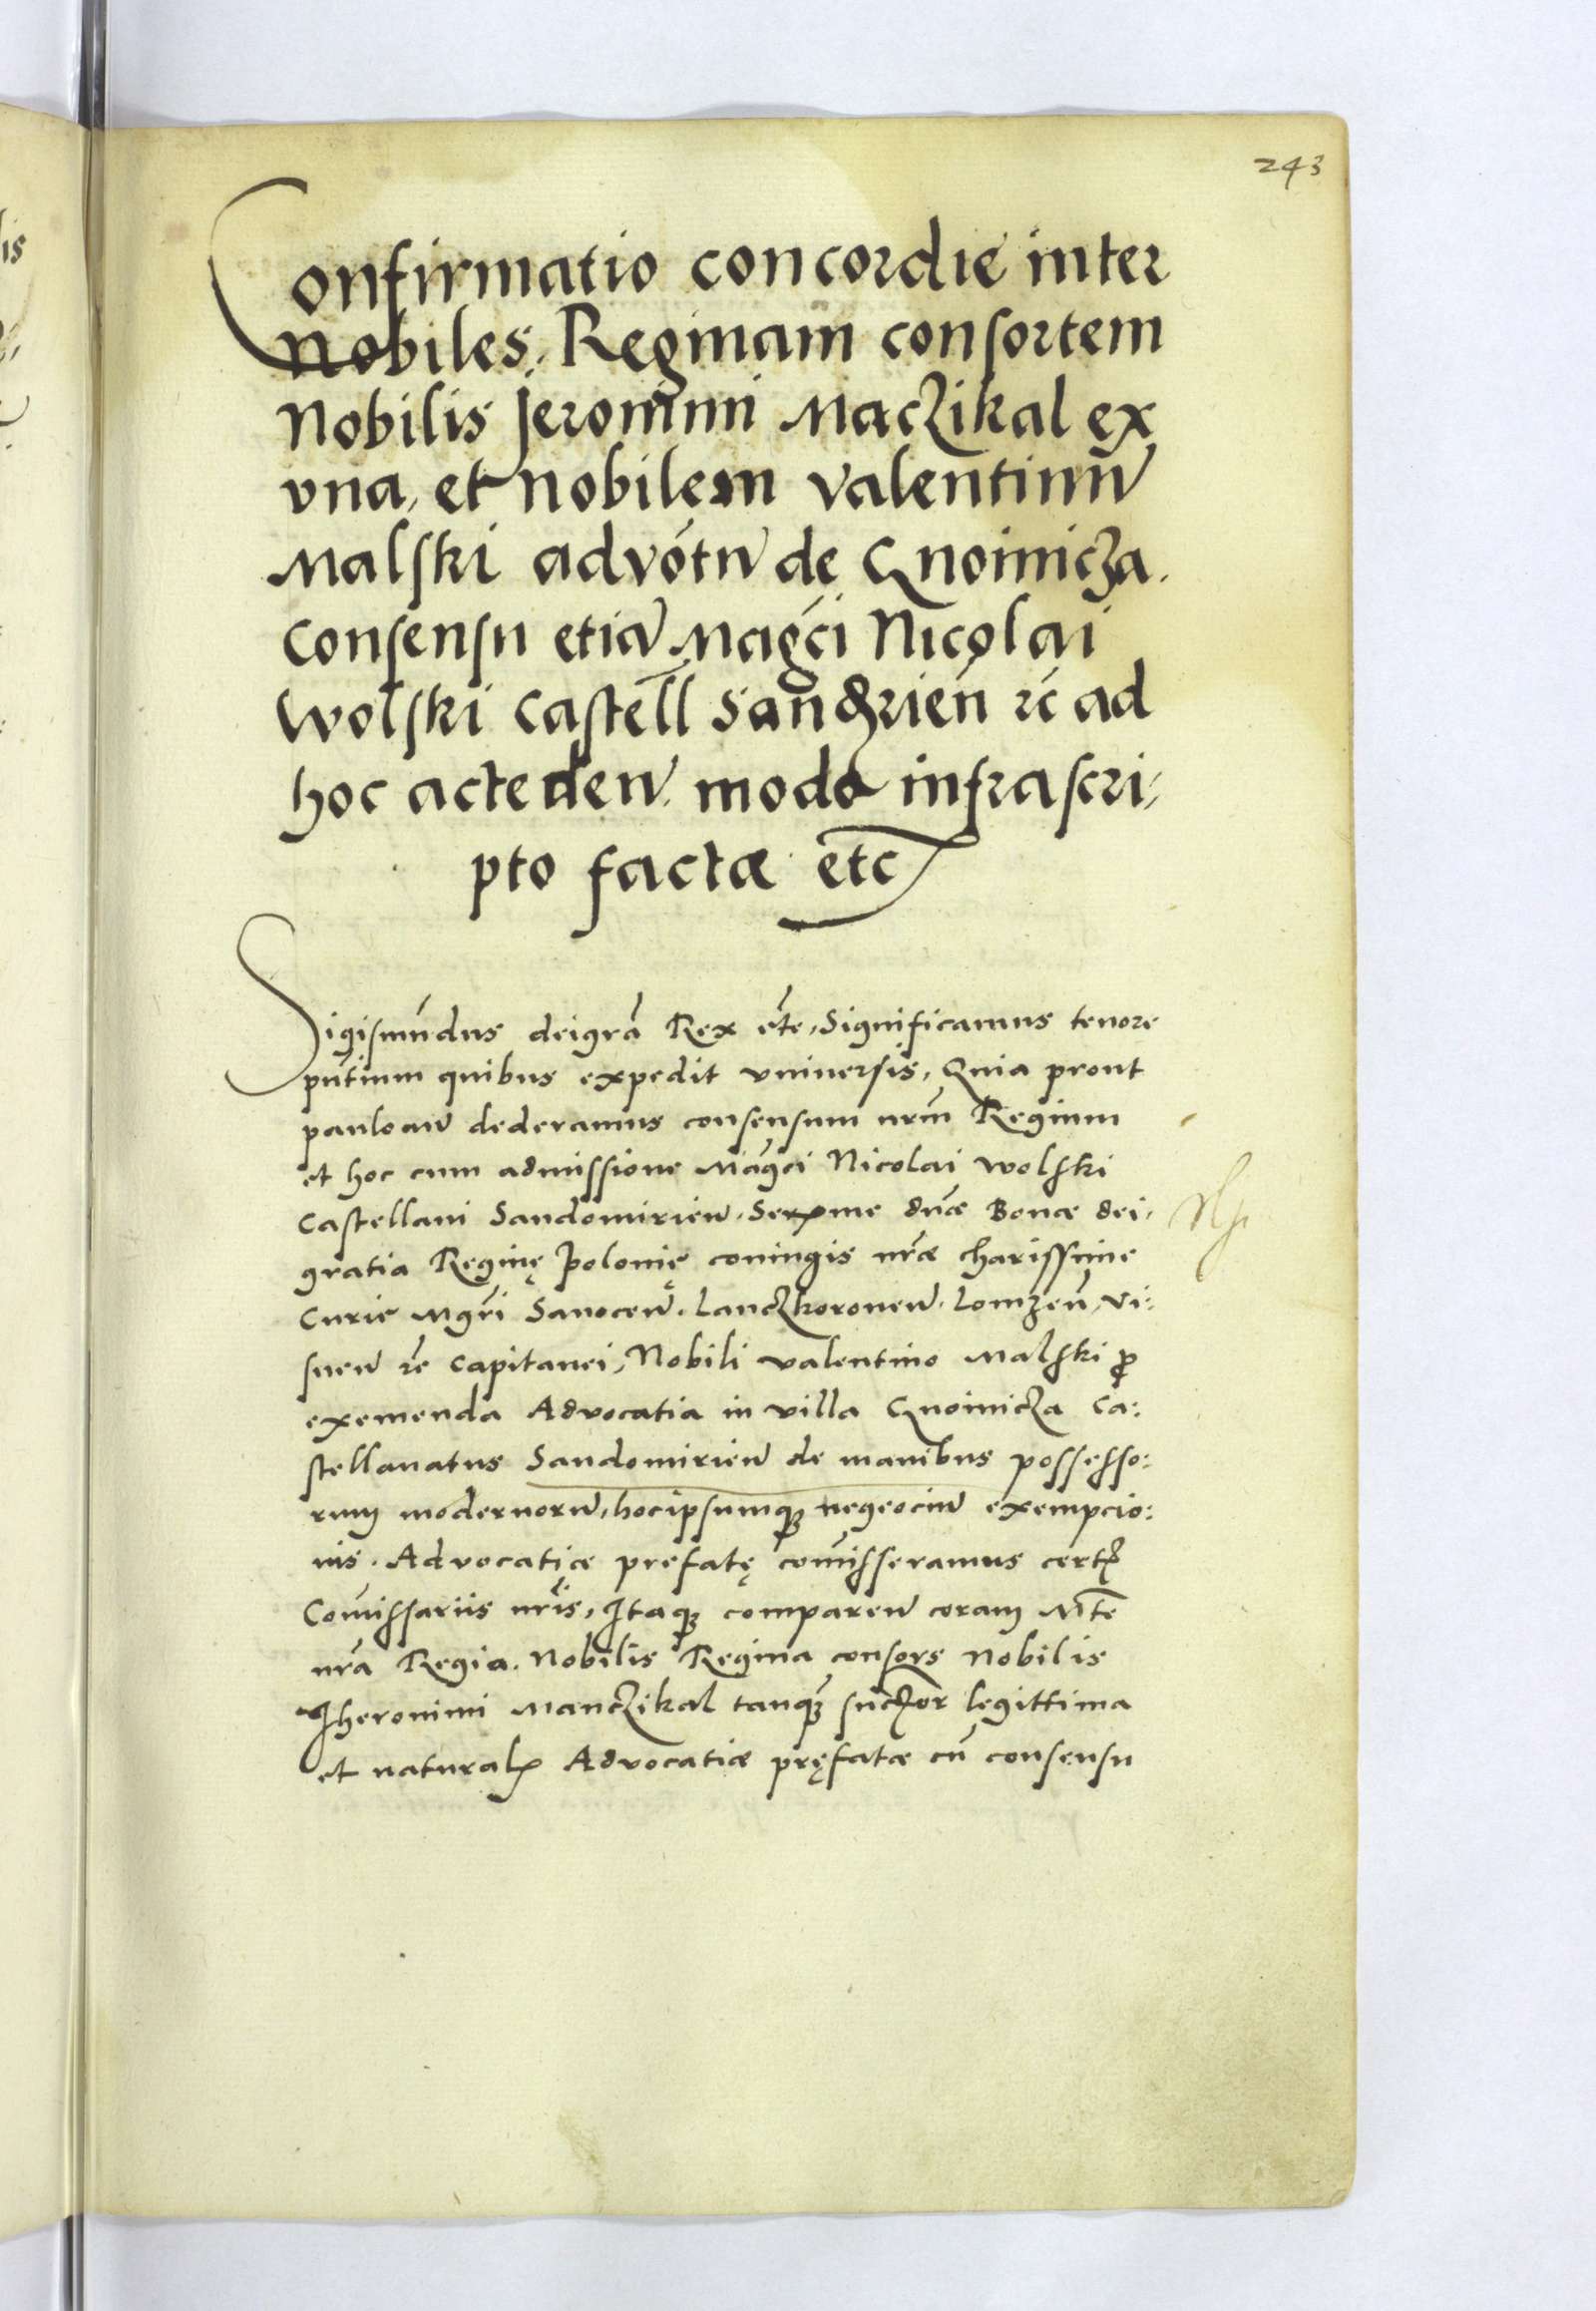 243
Confirmatio concordie inter
Nobiles, Reginam consortem
Nobilis Jeronimi Maczikal ex
vna, et nobilem valentinũ
Malski advotũ de Gnoinicza.
Consensu etiã Magci Nicolai
Wolski Castell Sandrień rc ad
hoc actedeñ. modo infrascri,
pto factæ etc
Sigismũdus deigrã Rex etc, Significamus tenore
pñtium quibus expedit vniuersis, Quia prout
pauloañ dederamus consensum nrm̃ Regium
et hoc cum admissione Magci Nicolai Wolski
Castellani Sandomirieñ. Serme dnæ Bonæ dei,
gratia Reginę Polonię coniugis nræ charissime
Curie Mgri Sanoceñ. Lanczkoroneñ. Lomzeñ, vi:
sneñ rc Capitanei, Nobili valentino Malski ꝓ
exemenda Advocatia in villa Gnoinicza Ca:
stellanatus Sandomirieñ de manibus possesso:
rum modernorũ, hocipsumqꝫ negeociũ exempcio:
nis. Advocatiæ prefatę com̃isseramus certꝭ
Com̃issariis nrĩs, Itaqꝫ compareñ coram Mte
nrã Regia. Nobilis Regina consors Nobilis
Iheronimi Manczikal tanqꝫ legittima
et naturalꝭ Advocatiæ pręfatæ cũ consensu